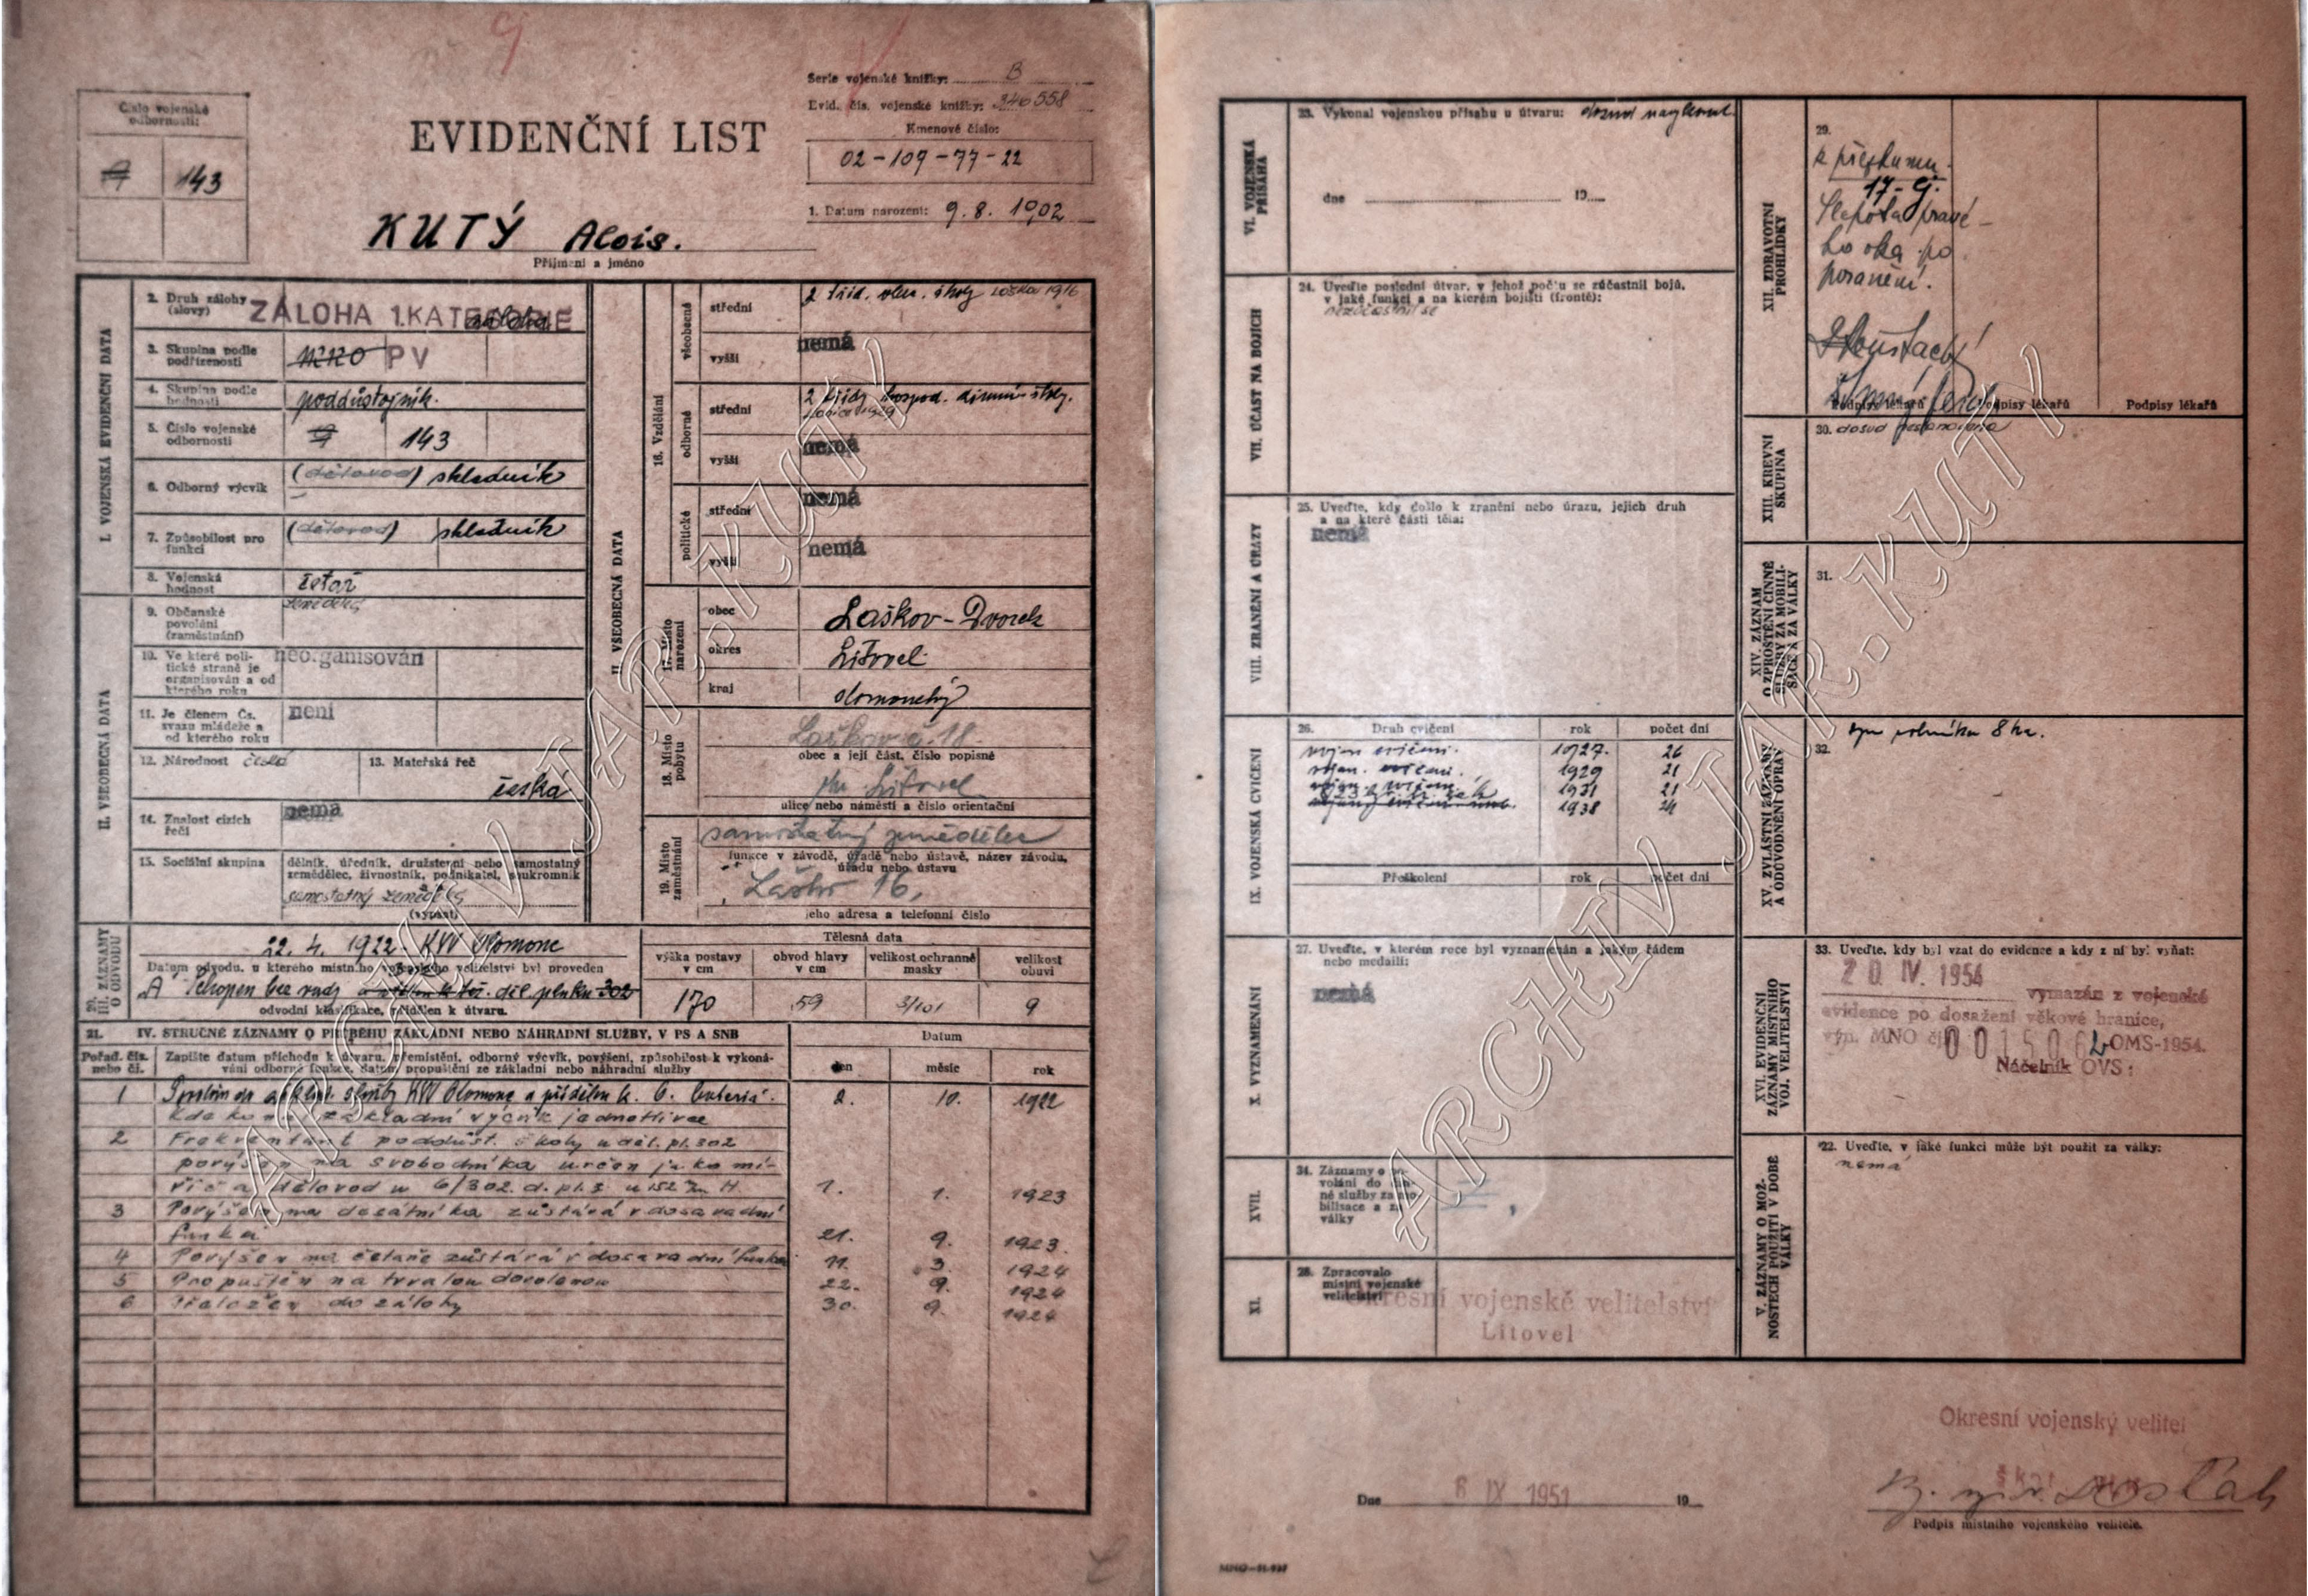 9
Číslo vojenské
odbornosti:
143
EVIDENČNÍ LIST
Serie vojenské knížky: B
Evid. čís. vojenské knížky: 346558
Kmenové číslo:
02-109-77-22
1. Datum narození: 9. 8. 1902
KUTÝ Alois.
Příjmení a jméno
I. VOJENSKÁ EVIDENČNÍ DATA
2. Druh zálohy
(slovy)
ZÁLOHA 1. KATEGORIE
3. Skupina podle
podřízenosti
PV
4. Skupina podle
hodnosti
poddůstojník.
5. Číslo vojenské
odbornosti
143
6. Odborný výcvik
(dělovod) skladník
7. Způsobilost pro
funkci
(dělovod) skladník
8. Vojenská
hodnost
četař
II. VŠEOBECNÁ DATA
9. Občanské
povolání
(zaměstnání)
zemědělec
10. Ve které poli-
tické straně je
organisován a od
kterého roku
neorganisován
11. Je členem Čs.
svazu mládeže a
od kterého roku
není
12. Národnost česká
13. Mateřská řeč
česká
14. Znalost cizích
řečí
nemá
15. Sociální skupina
dělník, úředník, družstevní nebo samostatný
zemědělec, živnostník, podnikatel, soukromník
samostatný zemědělec
(vypsat)
II. VŠEOBECNÁ DATA
16. Vzdělání
všeobecné
střední
2 tříd. obec. školy 1916
vyšší
nemá
odborné
střední
2 třídy hospod. zimní školy.
vyšší
nemá
politické
střední
nemá
vyšší
nemá
17. Místo
narození
obec
Laškov-Dvorek
okres
Litovel
kraj
olomoucký
18. Místo
pobytu
Laškov č. 18
obec a její část, číslo popisné
Litovel
ulice nebo náměstí a číslo orientační
19. Místo
zaměstnání
samostatný zemědělec
funkce v závodě, úřadě nebo ústavě, název závodu,
úřadu nebo ústavu
16,
jeho adresa a telefonní číslo
20.
III. ZÁZNAMY
O ODVODU
22. 4. 1922. KVV Olomouc
Datum odvodu, u kterého místního vojenského velitelství byl proveden
"A" Schopen bez vady děl. pluku 302
odvodní klasifikace, přidělen k útvaru.
Tělesná data
výška postavy
v cm
obvod hlavy
v cm
velikost ochranné
masky
velikost
obuvi
170
59
3/101
9
21. IV. STRUČNÉ ZÁZNAMY O PRŮBĚHU ZÁKLADNÍ NEBO NÁHRADNÍ SLUŽBY, V PS A SNB
Datum
Pořad. čís.
nebo čl.
Zapište datum příchodu k útvaru, přemístění, odborný výcvik, povýšení, způsobilost k vykoná-
vání odborné funkce, datum propuštění ze základní nebo náhradní služby
den
měsíc
rok
1 služby KVV Olomouc a přidělen k. 6. baterii. 2. 10. 1922
kde koná základní výcvik jednotlivce
2 Frekventant poddůst. školy u děl. pl. 302
povýšen na svobodníka určen jako mi-
řič a dělovod u 6/302. d. pl. 1. 1. 1923
3 Povýšen na desátníka zůstává v dosavadní
funkci 21. 9. 1923.
4 Povýšen na četaře zůstává v dosavadní funkci 11. 3. 1924
5 Propuštěn na trvalou dovolenou 22. 9. 1924
6 Přeložen do zálohy 30. 9. 1924
VI. VOJENSKÁ
PŘÍSAHA
23. Vykonal vojenskou přísahu u útvaru: dosud nevykonal.
dne 19
VII. ÚČAST NA BOJÍCH
24. Uveďte poslední útvar, v jehož počtu se zúčastnil bojů,
v jaké funkci a na kterém bojišti (frontě):
nezúčastnil se
VIII. ZRANĚNÍ A ÚRAZY
25. Uveďte, kdy došlo k zranění nebo úrazu, jejich druh
a na které části těla:
nemá
IX. VOJENSKÁ CVIČENÍ
26. Druh cvičení rok počet dní
vojen. cvičení. 1927. 26
vojen. cvičení. 1929 21
vojen. cvičení 1931 21
1938 24
Přeškolení rok počet dní
X. VYZNAMENÁNÍ
27. Uveďte, v kterém roce byl vyznamenán a jakým řádem
nebo medailí:
nemá
XVII.
34. Záznamy o po-
volání do čin-
né služby za mo-
bilisace a za
války
XI.
28. Zpracovalo
místní vojenské
velitelství
Okresní vojenské velitelství
Litovel
XII. ZDRAVOTNÍ
PROHLÍDKY
29.
k přezkumu.
17-
Slepota pravé-
ho oka po
poranění.
Podpisy lékařů
Podpisy lékařů
Podpisy lékařů
XIII. KREVNÍ
SKUPINA
30. dosud nestanovena
XIV. ZÁZNAM
O ZPROŠTĚNÍ ČINNÉ
SLUŽBY ZA MOBILI-
SACE A ZA VÁLKY
31.
XV. ZVLÁŠTNÍ ZÁZNAMY
A ODŮVODNĚNÍ OPRAV
32.
syn rolníka 8 ha.
XVI. EVIDENČNÍ
ZÁZNAMY MÍSTNÍHO
VOJ. VELITELSTVÍ
33. Uveďte, kdy byl vzat do evidence a kdy z ní byl vyňat:
20 IV. 1954
vymazán z vojenské
evidence po dosažení věkové hranice,
výn. MNO čj. 001506 OMS-1954.
Náčelník OVS:
V. ZÁZNAMY O MOŽ-
NOSTECH POUŽITÍ V DOBĚ
VÁLKY
22. Uveďte, v jaké funkci může být použit za války:
nemá
Okresní vojenský velitel
Dne 8 IX 1951 19
Podpis místního vojenského velitele.
ARCHIV JAR. KUTÝ
ARCHIV JAR. KUTÝ